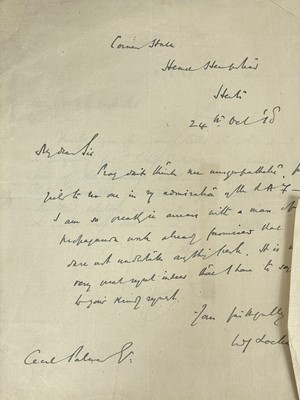 Corner Hall
Hemel Hempstead
Herts
24th Oct '18
My dear Sir
Pray don't think me unsympathetic, for
yield to no one in my admiration of the R A F —
I am so greatly in arrears with a mass of
propaganda work already promised that
dare not undertake anything fresh. It is
very great regret indeed that I have to say
to your kind request.
Yours faithfully
W J Locke
Cecil Palmer Esq.